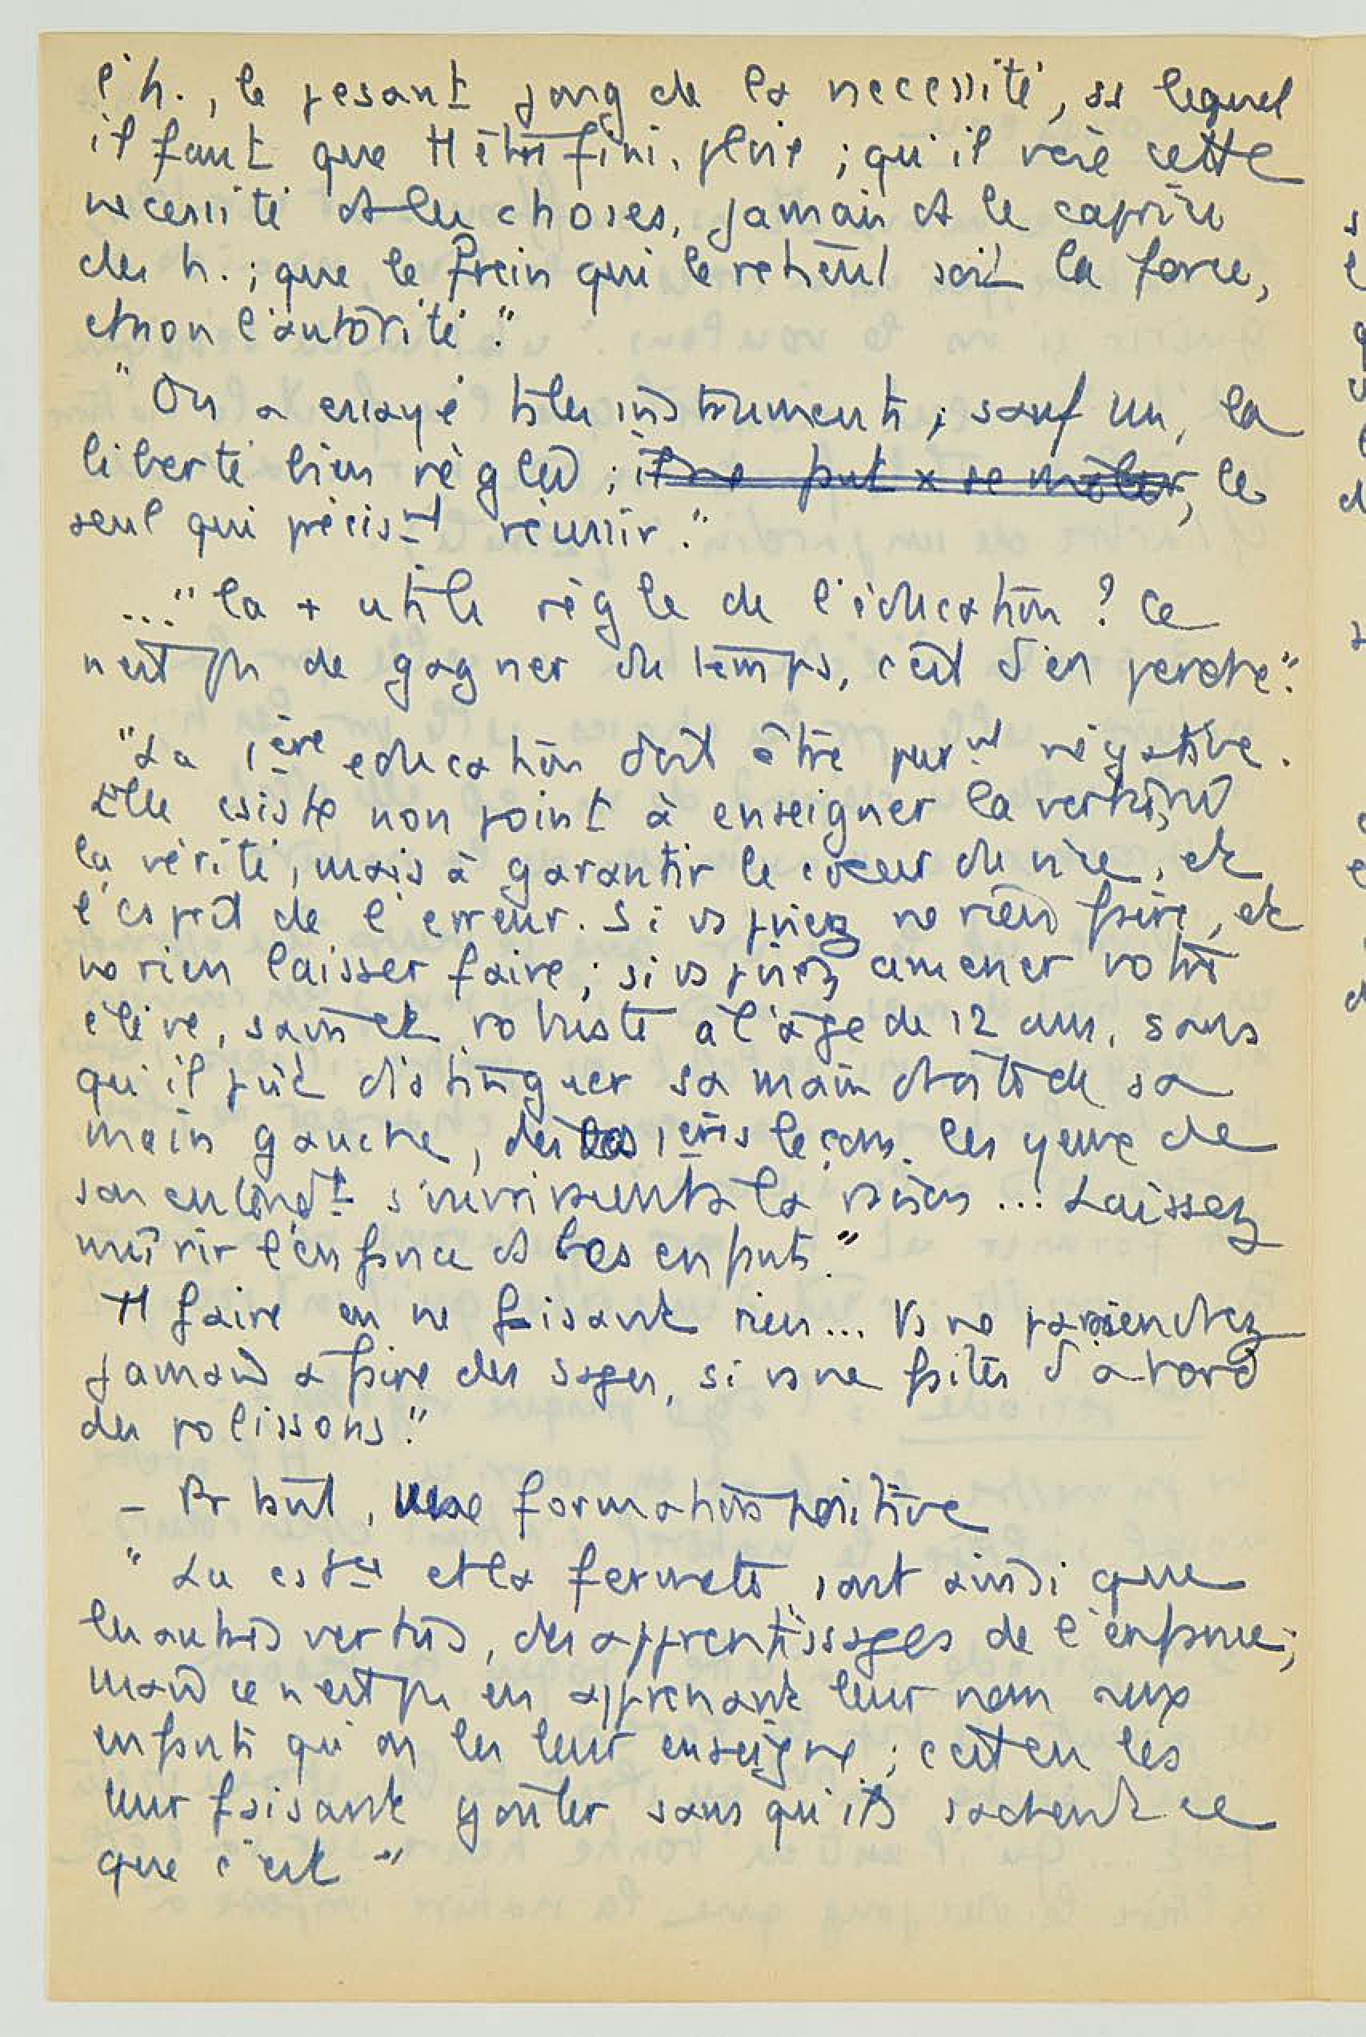 l'h., le pesant joug de la necessité, ss lequel
il faut que tt être fini, ploie ; qu'il voie cette
necessité ds les choses, jamais ds le caprice
des h. ; que le frein qui le retient soit la force,
et non l'autorité."
"On a essayé ts les instruments, sauf un, la
liberté bien réglée ; le
seul qui précist réussir."
..." la + utile règle de l'éducation ? Ce
n'est pas de gagner du temps, c'est d'en perdre".
"La 1ère education doit être purt négative.
Elle csiste non point à enseigner la vertu, ni
la vérité, mais à garantir le coeur du vice, et
l'esprit de l'erreur. Si vs pviez ne rien faire, et
ne rien laisser faire ; si vs pviez amener votre
élève, sain et robuste à l'âge de 12 ans, sans
qu'il pût distinguer sa main droite de sa
main gauche, dès les 1ères leçons, les yeux de
son entendt s'ouvriraient à la raison ... Laissez
mûrir l'enfance ds les enfants."
Tt faire en ne faisant rien... Vs ne parviendrez
jamais à faire des sages, si vs ne faites d'abord
des polissons."
- Pr but, une formation positive
"La cstce et la fermeté, sont ainsi que
les autres vertus, des apprentissages de l'enfance ;
mais ce n'est pas en apprenant leur nom aux
enfants qu'on les leur enseigne ; c'est en les
leur faisant goûter sans qu'ils sachent ce
que c'est"